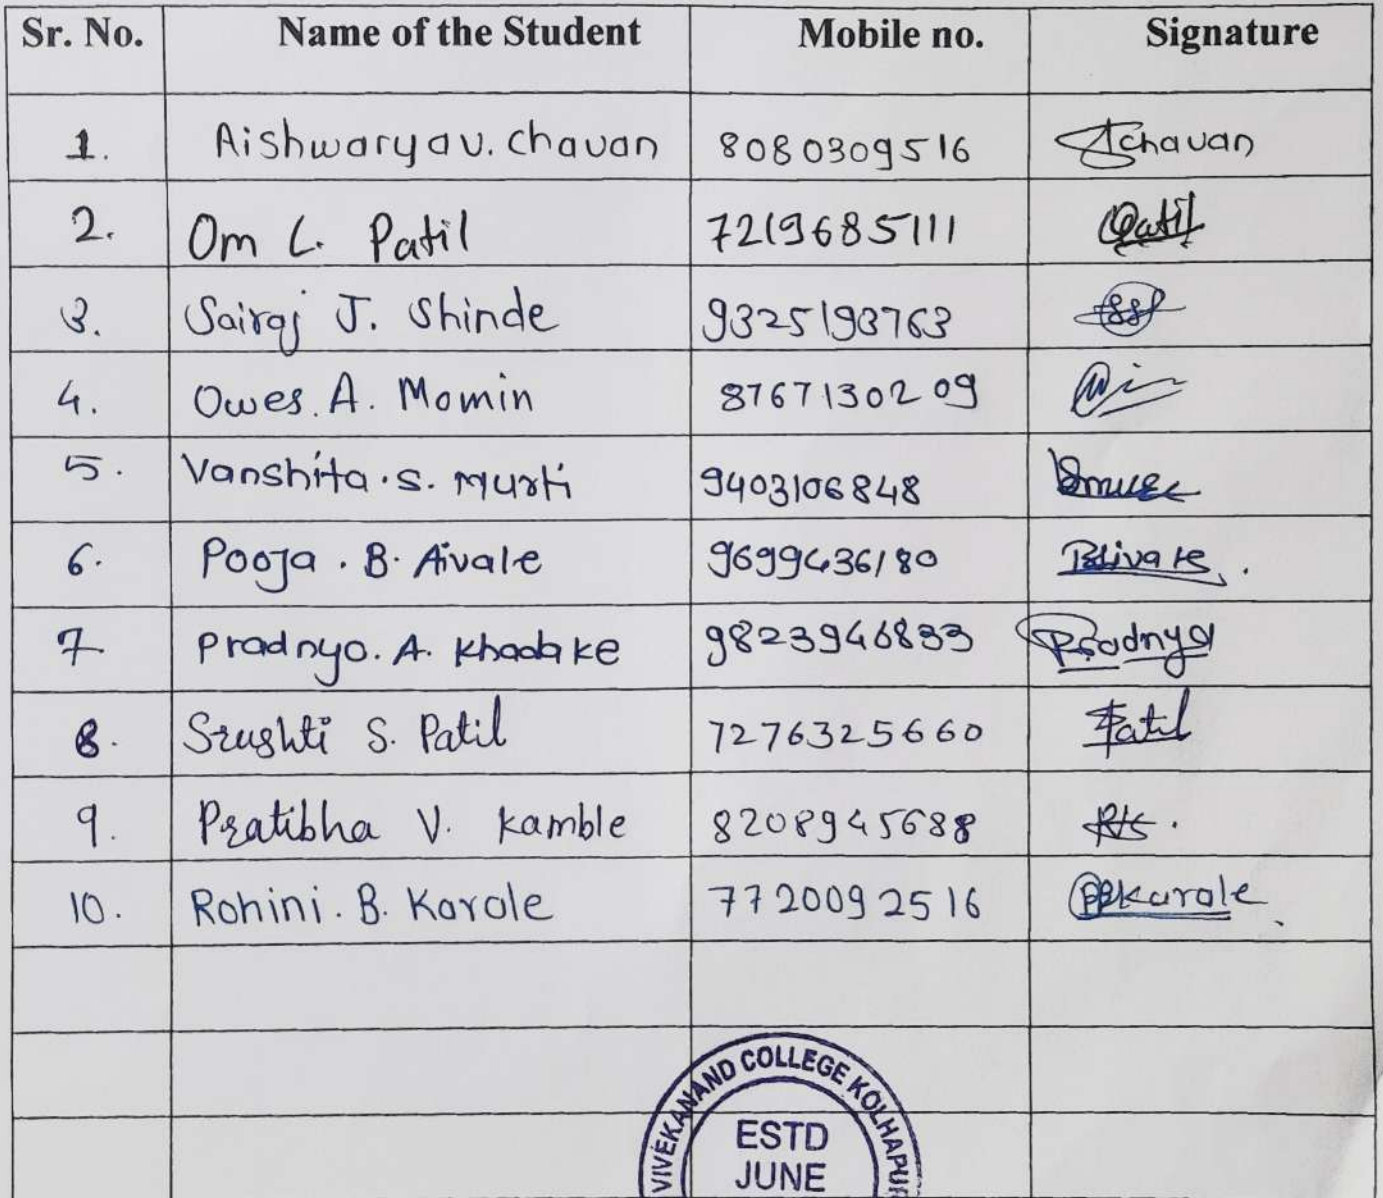 Sr. No. Name of the Student Mobile no. Signature
1. Aishwarya v. chavan 8080309516 chavan
2. Om L. Patil 7219685111 Patil
3. Sairaj J. Shinde 9325193763
4. Owes. A. Momin 8767130209
5. Vanshita.s. Murti 9403106848
6. Pooja. B. Aivale 9699436180
7 Pradnya. A. Khadake 9823946833 Pradnya
8. Srushti S. Patil 7276325660 Patil
9. Pratibha V. Kamble 8208945688
10. Rohini. B. Karole 7720092516 Karole
VIVEKANAND COLLEGE KOLHAPUR
ESTD
JUNE